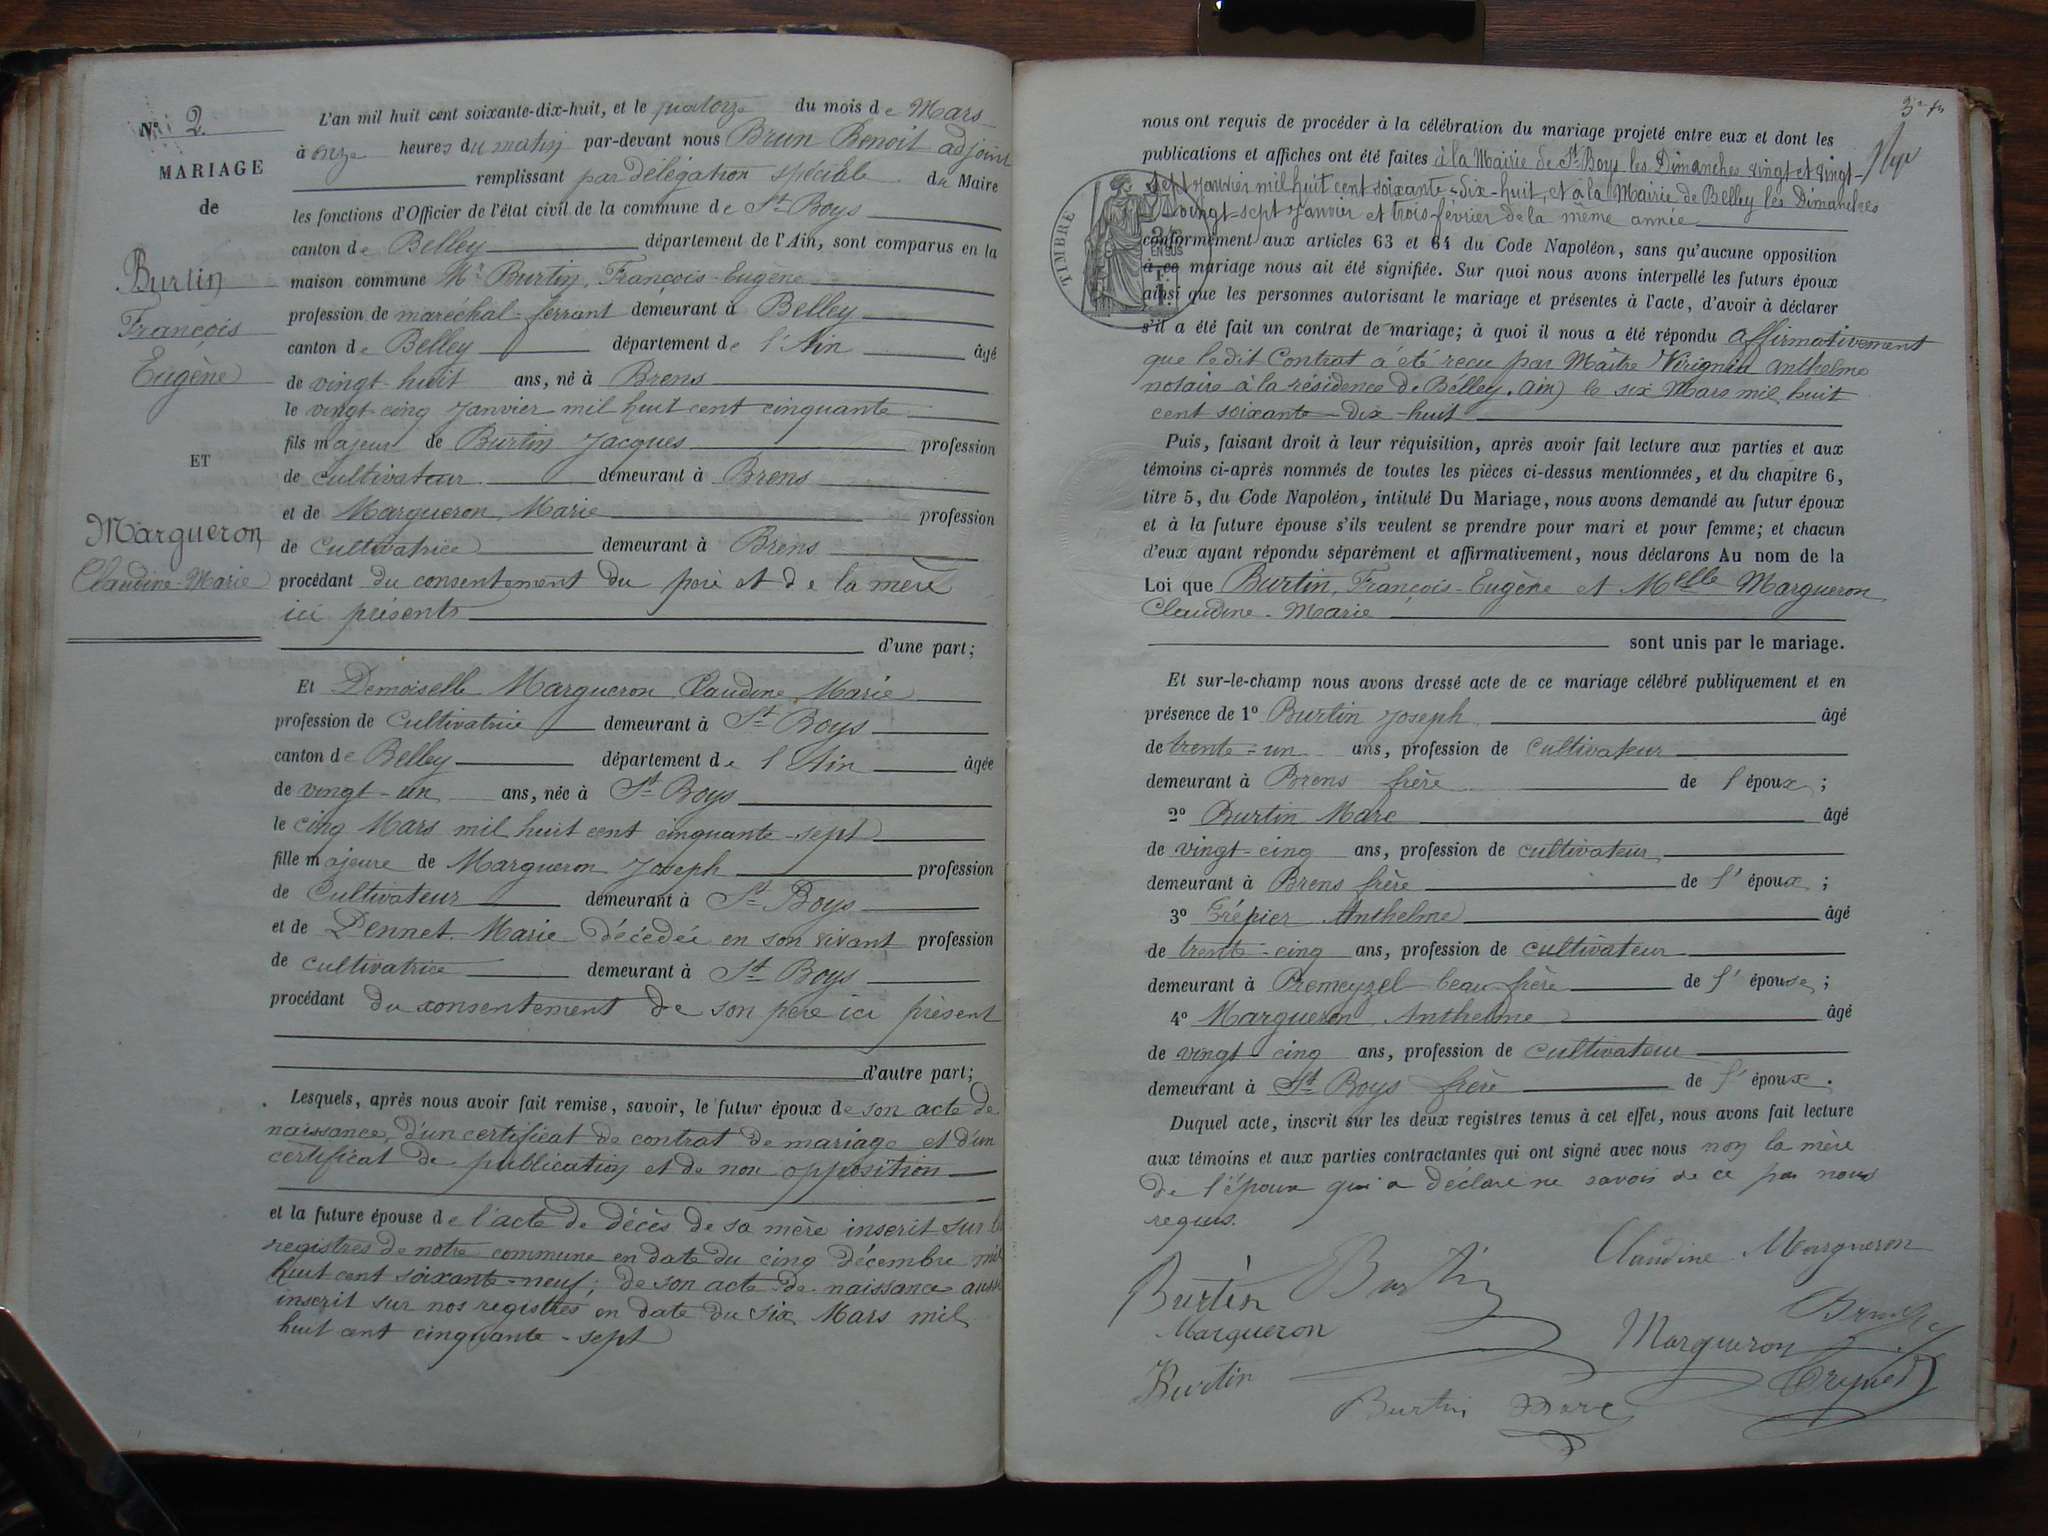 N° 2
MARIAGE
de
Burtin
François
Eugène
ET
Margueron
Claudine-Marie
L'an mil huit cent soixante-dix-huit, et le quatorze du mois de Mars
à onze heures du matin par-devant nous Brun Benoit adjoint
remplissant par délégation spéciale du Maire
les fonctions d'Officier de l'état civil de la commune de St Boys
canton de Belley département de l'Ain, sont comparus en la
maison commune Mr Burtin, François-Eugène
profession de maréchal-ferrant demeurant à Belley
canton de Belley département de l'Ain âgé
de vingt-huit ans, né à Brens
le vingt-cinq Janvier mil huit cent cinquante
fils majeur de Burtin Jacques profession
de cultivateur demeurant à Brens
et de Margueron, Marie profession
de cultivatrice demeurant à Brens
procédant du consentement du père et de la mère
ici présents
d'une part;
Et Demoiselle Margueron Claudine Marie
profession de Cultivatrice demeurant à St Boys
canton de Belley département de l'Ain âgée
de vingt-un ans, née à St Boys
le cinq Mars mil huit cent cinquante-sept
fille majeure de Margueron Joseph profession
de Cultivateur demeurant à St Boys
et de Pennet Marie décédée en son vivant profession
de cultivatrice demeurant à St Boys
procédant du consentement de son père ici présent
d'autre part;
Lesquels, après nous avoir fait remise, savoir, le futur époux de son acte de
naissance, d'un certificat de contrat de mariage et d'un
certificat de publication et de non opposition
et la future épouse de l'acte de décès de sa mère inscrit sur les
registres de notre commune en date du cinq décembre mil
huit cent soixante-neuf; de son acte de naissance aussi
inscrit sur nos registres en date du six Mars mil
huit cent cinquante-sept
nous ont requis de procéder à la célébration du mariage projeté entre eux et dont les
publications et affiches ont été faites à la Mairie de St Boys les Dimanches vingt et vingt-
sept Janvier mil huit cent soixante-dix-huit, et à la Mairie de Belley les Dimanches
vingt-sept Janvier et trois février de la même année
TIMBRE
conformément aux articles 63 et 64 du Code Napoléon, sans qu'aucune opposition
EN SUS
à ce mariage nous ait été signifiée. Sur quoi nous avons interpellé les futurs époux
ainsi que les personnes autorisant le mariage et présentes à l'acte, d'avoir à déclarer
s'il a été fait un contrat de mariage; à quoi il nous a été répondu affirmativement
que ledit Contrat a été reçu par Maître Virignin Anthelme
notaire à la résidence de Belley, Ain) le six Mars mil huit
cent soixante-dix-huit
Puis, faisant droit à leur réquisition, après avoir fait lecture aux parties et aux
témoins ci-après nommés de toutes les pièces ci-dessus mentionnées, et du chapitre 6,
titre 5, du Code Napoléon, intitulé Du Mariage, nous avons demandé au futur époux
et à la future épouse s'ils veulent se prendre pour mari et pour femme; et chacun
d'eux ayant répondu séparément et affirmativement, nous déclarons Au nom de la
Loi que Burtin, François-Eugène et Melle Margueron
Claudine-Marie
sont unis par le mariage.
Et sur-le-champ nous avons dressé acte de ce mariage célébré publiquement et en
présence de 1° Burtin Joseph âgé
de trente-un ans, profession de cultivateur
demeurant à Brens frère de l'époux;
2° Burtin Marc âgé
de vingt-cinq ans, profession de cultivateur
demeurant à Brens frère de l'époux;
3° Trépier Anthelme âgé
de trente-cinq ans, profession de cultivateur
demeurant à Premeyzel beau-frère de l'épouse;
4° Margueron, Anthelme âgé
de vingt-cinq ans, profession de cultivateur
demeurant à St Boys frère de l'épouse.
Duquel acte, inscrit sur les deux registres tenus à cet effet, nous avons fait lecture
aux témoins et aux parties contractantes qui ont signé avec nous non la mère
de l'époux qui a déclaré ne savoir de ce par nous
requis.
Claudine Margueron
Burtin Burtin
Margueron Margueron
Burtin
Burtin Marc